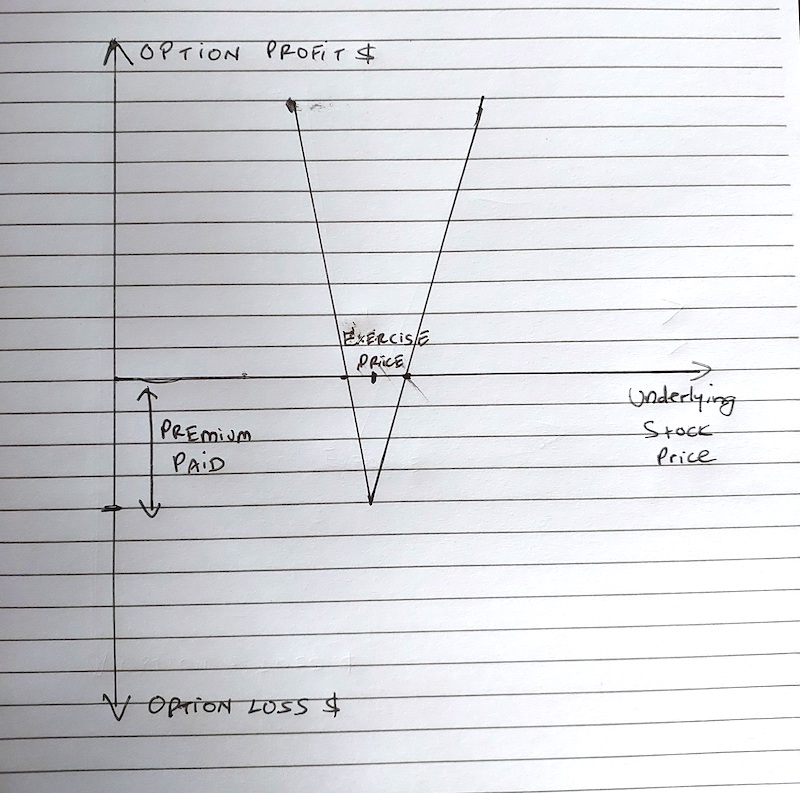 OPTION PROFIT $
EXERCISE
PRICE
Underlying
Stock
Price
PREMIUM
PAID
OPTION LOSS $